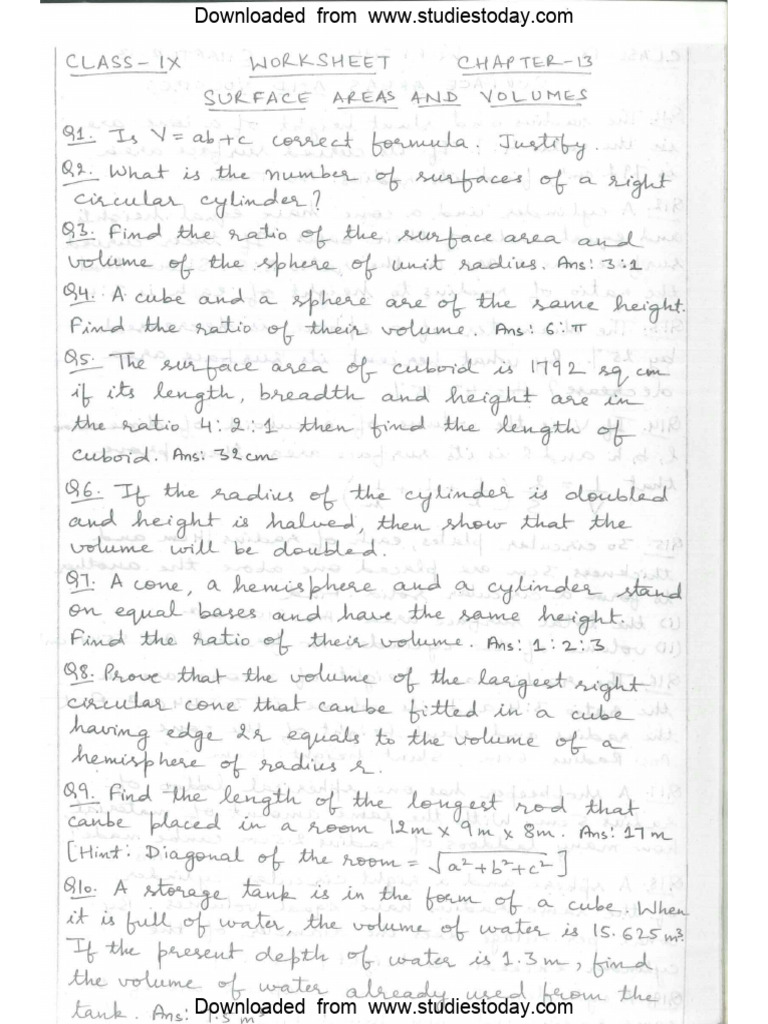 Downloaded from www.studiestoday.com
CLASS-IX WORKSHEET CHAPTER-13
SURFACE AREAS AND VOLUMES
Q1. Is V = ab+c correct formula. Justify.
Q2. What is the number of surfaces of a right
circular cylinder?
Q3. Find the ratio of the surface area and
volume of the sphere of unit radius. Ans: 3:1
Q4. A cube and a sphere are of the same height.
Find the ratio of their volume. Ans: 6:π
Q5. The surface area of cuboid is 1792 sq cm
if its length, breadth and height are in
the ratio 4:2:1 then find the length of
cuboid. Ans: 32cm
Q6. If the radius of the cylinder is doubled
and height is halved, then show that the
volume will be doubled.
Q7. A cone, a hemisphere and a cylinder stand
on equal bases and have the same height.
Find the ratio of their volume. Ans: 1:2:3
Q8. Prove that the volume of the largest right
circular cone that canbe fitted in a cube
having edge 2r equals to the volume of a
hemisphere of radius r.
Q9. Find the length of the longest rod that
canbe placed in a room 12m x 9m x 8m. Ans: 17m
[Hint: Diagonal of the room = √a²+b²+c²]
Q10. A storage tank is in the form of a cube. When
it is full of water, the volume of water is 15.625 m³.
If the present depth of water is 1.3m, find
the volume of water already used from the
tank. Ans:
Downloaded from www.studiestoday.com